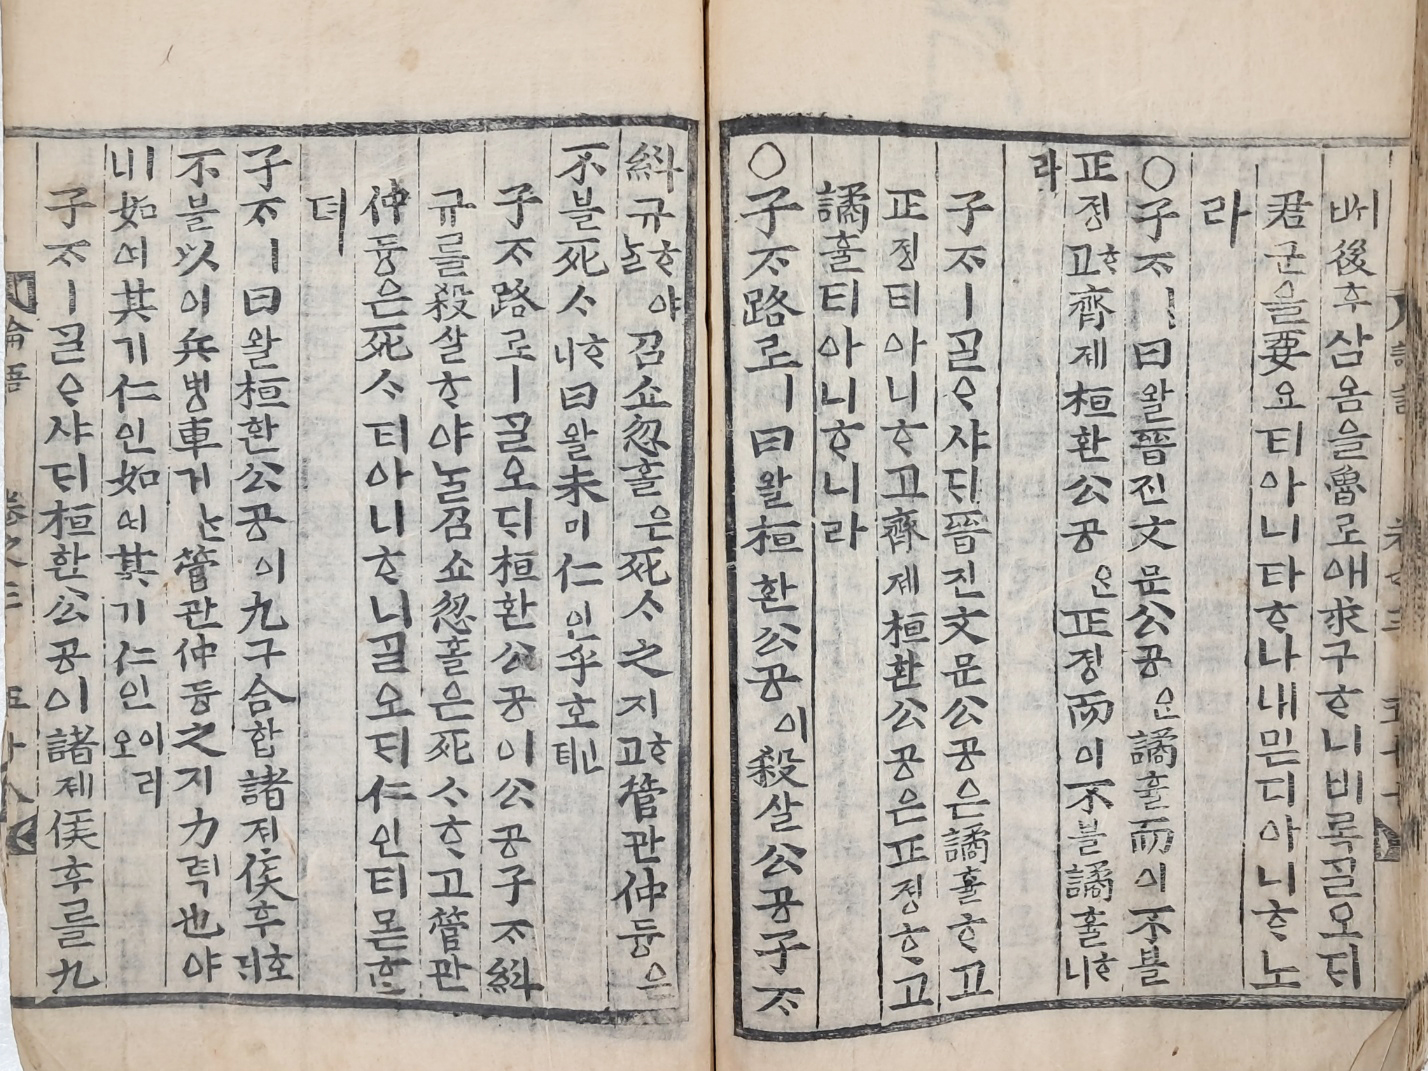 ᄡᅥ後후삼옴을魯로애求구ᄒᆞ니비록ᄀᆞᆯ오ᄃᆡ
君군을要요티아니타ᄒᆞ나내믿디아니ᄒᆞ노
라
○子ᄌᆞㅣ曰왈晉진文문公공ᄋᆞᆫ譎휼而이不블
正졍ᄒᆞ고齊제桓환公공ᄋᆞᆫ正졍而이不블譎휼ᄒᆞ니
라
子ᄌᆞㅣᄀᆞᆯᄋᆞ샤ᄃᆡ晉진文문公공은譎휼ᄒᆞ고
正졍티아니ᄒᆞ고齊제桓환公공은正졍ᄒᆞ고
譎휼티아니ᄒᆞ니라
○子ᄌᆞ路로ㅣ曰왈桓환公공이殺살公공子ᄌᆞ
糾규ᄒᆞ야ᄂᆞᆯ召쇼忽홀은死ᄉᆞ之지ᄒᆞ고管관仲듕은
不블死ᄉᆞᄒᆞ니曰왈未미仁인乎호ㅣㄴ뎌
子ᄌᆞ路로ㅣᄀᆞᆯ오ᄃᆡ桓환公공이公공子ᄌᆞ糾
규를殺살ᄒᆞ야ᄂᆞᆯ召쇼忽홀은死ᄉᆞᄒᆞ고管관
仲듕은死ᄉᆞ티아니ᄒᆞ니ᄀᆞᆯ오ᄃᆡ仁인티몯ᄒᆞᆫ
뎌
子ᄌᆞㅣ曰왈桓환公공이九구合합諸졔侯후호ᄃᆡ
不블以이兵병車거ᄂᆞᆫ管관仲듕之지力력也야
ㅣ니如여其기仁인如여其기仁인이리오
子ᄌᆞㅣᄀᆞᆯᄋᆞ샤ᄃᆡ桓환公공이諸졔侯후를九
論語 卷之三 五十八